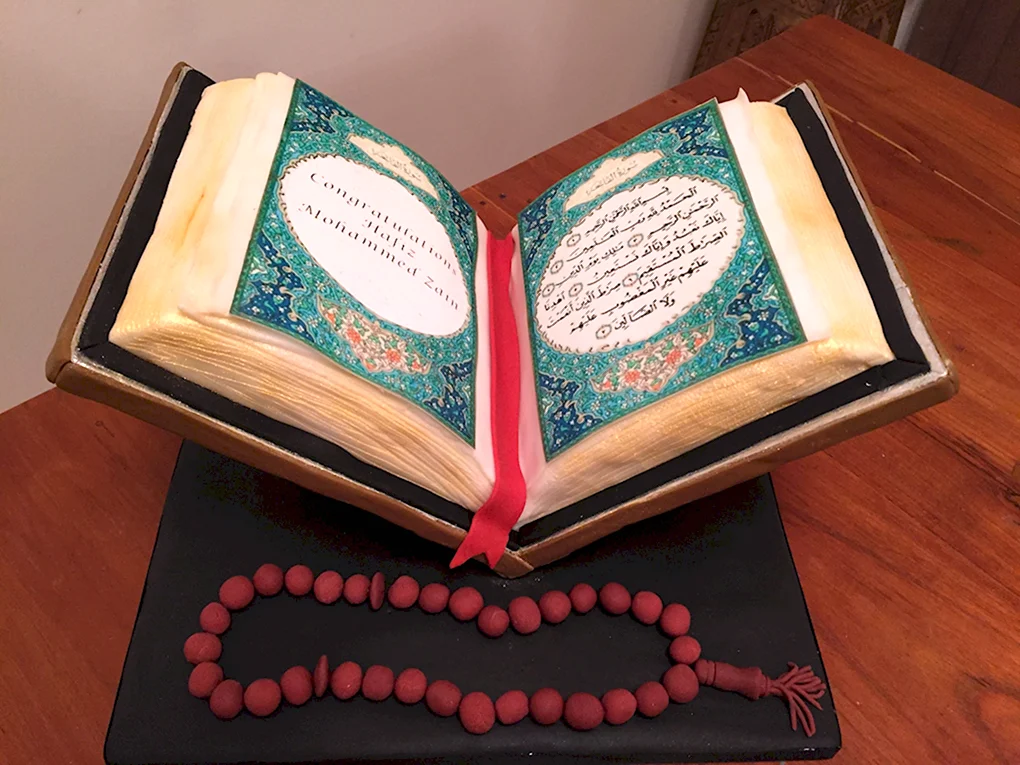 سورة الفاتحة
Congratulations
Hafiz
Mohammed Zain
سورة الفاتحة
بِسْمِ اللَّهِ الرَّحْمَٰنِ الرَّحِيمِ
الْحَمْدُ لِلَّهِ رَبِّ الْعَالَمِينَ
الرَّحْمَٰنِ الرَّحِيمِ مَالِكِ يَوْمِ الدِّينِ
إِيَّاكَ نَعْبُدُ وَإِيَّاكَ نَسْتَعِينُ اهْدِنَا
الصِّرَطَ الْمُسْتَقِيمَ صِرَطَ الَّذِينَ أَنْعَمْتَ
عَلَيْهِمْ غَيْرِ الْمَغْضُوبِ عَلَيْهِمْ
وَلَا الضَّالِّينَ